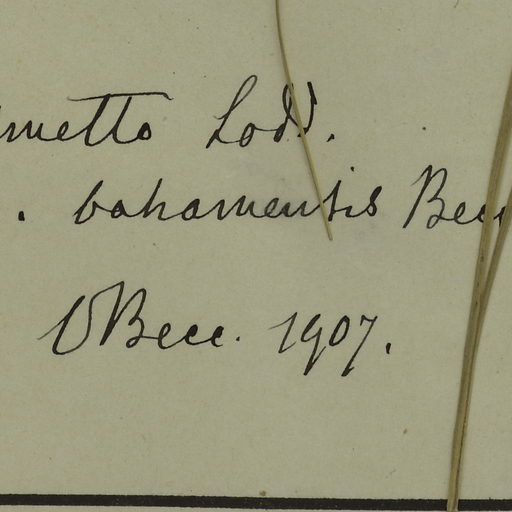 metto Lodd.
. bahamensis Becc
OBecc. 1907.